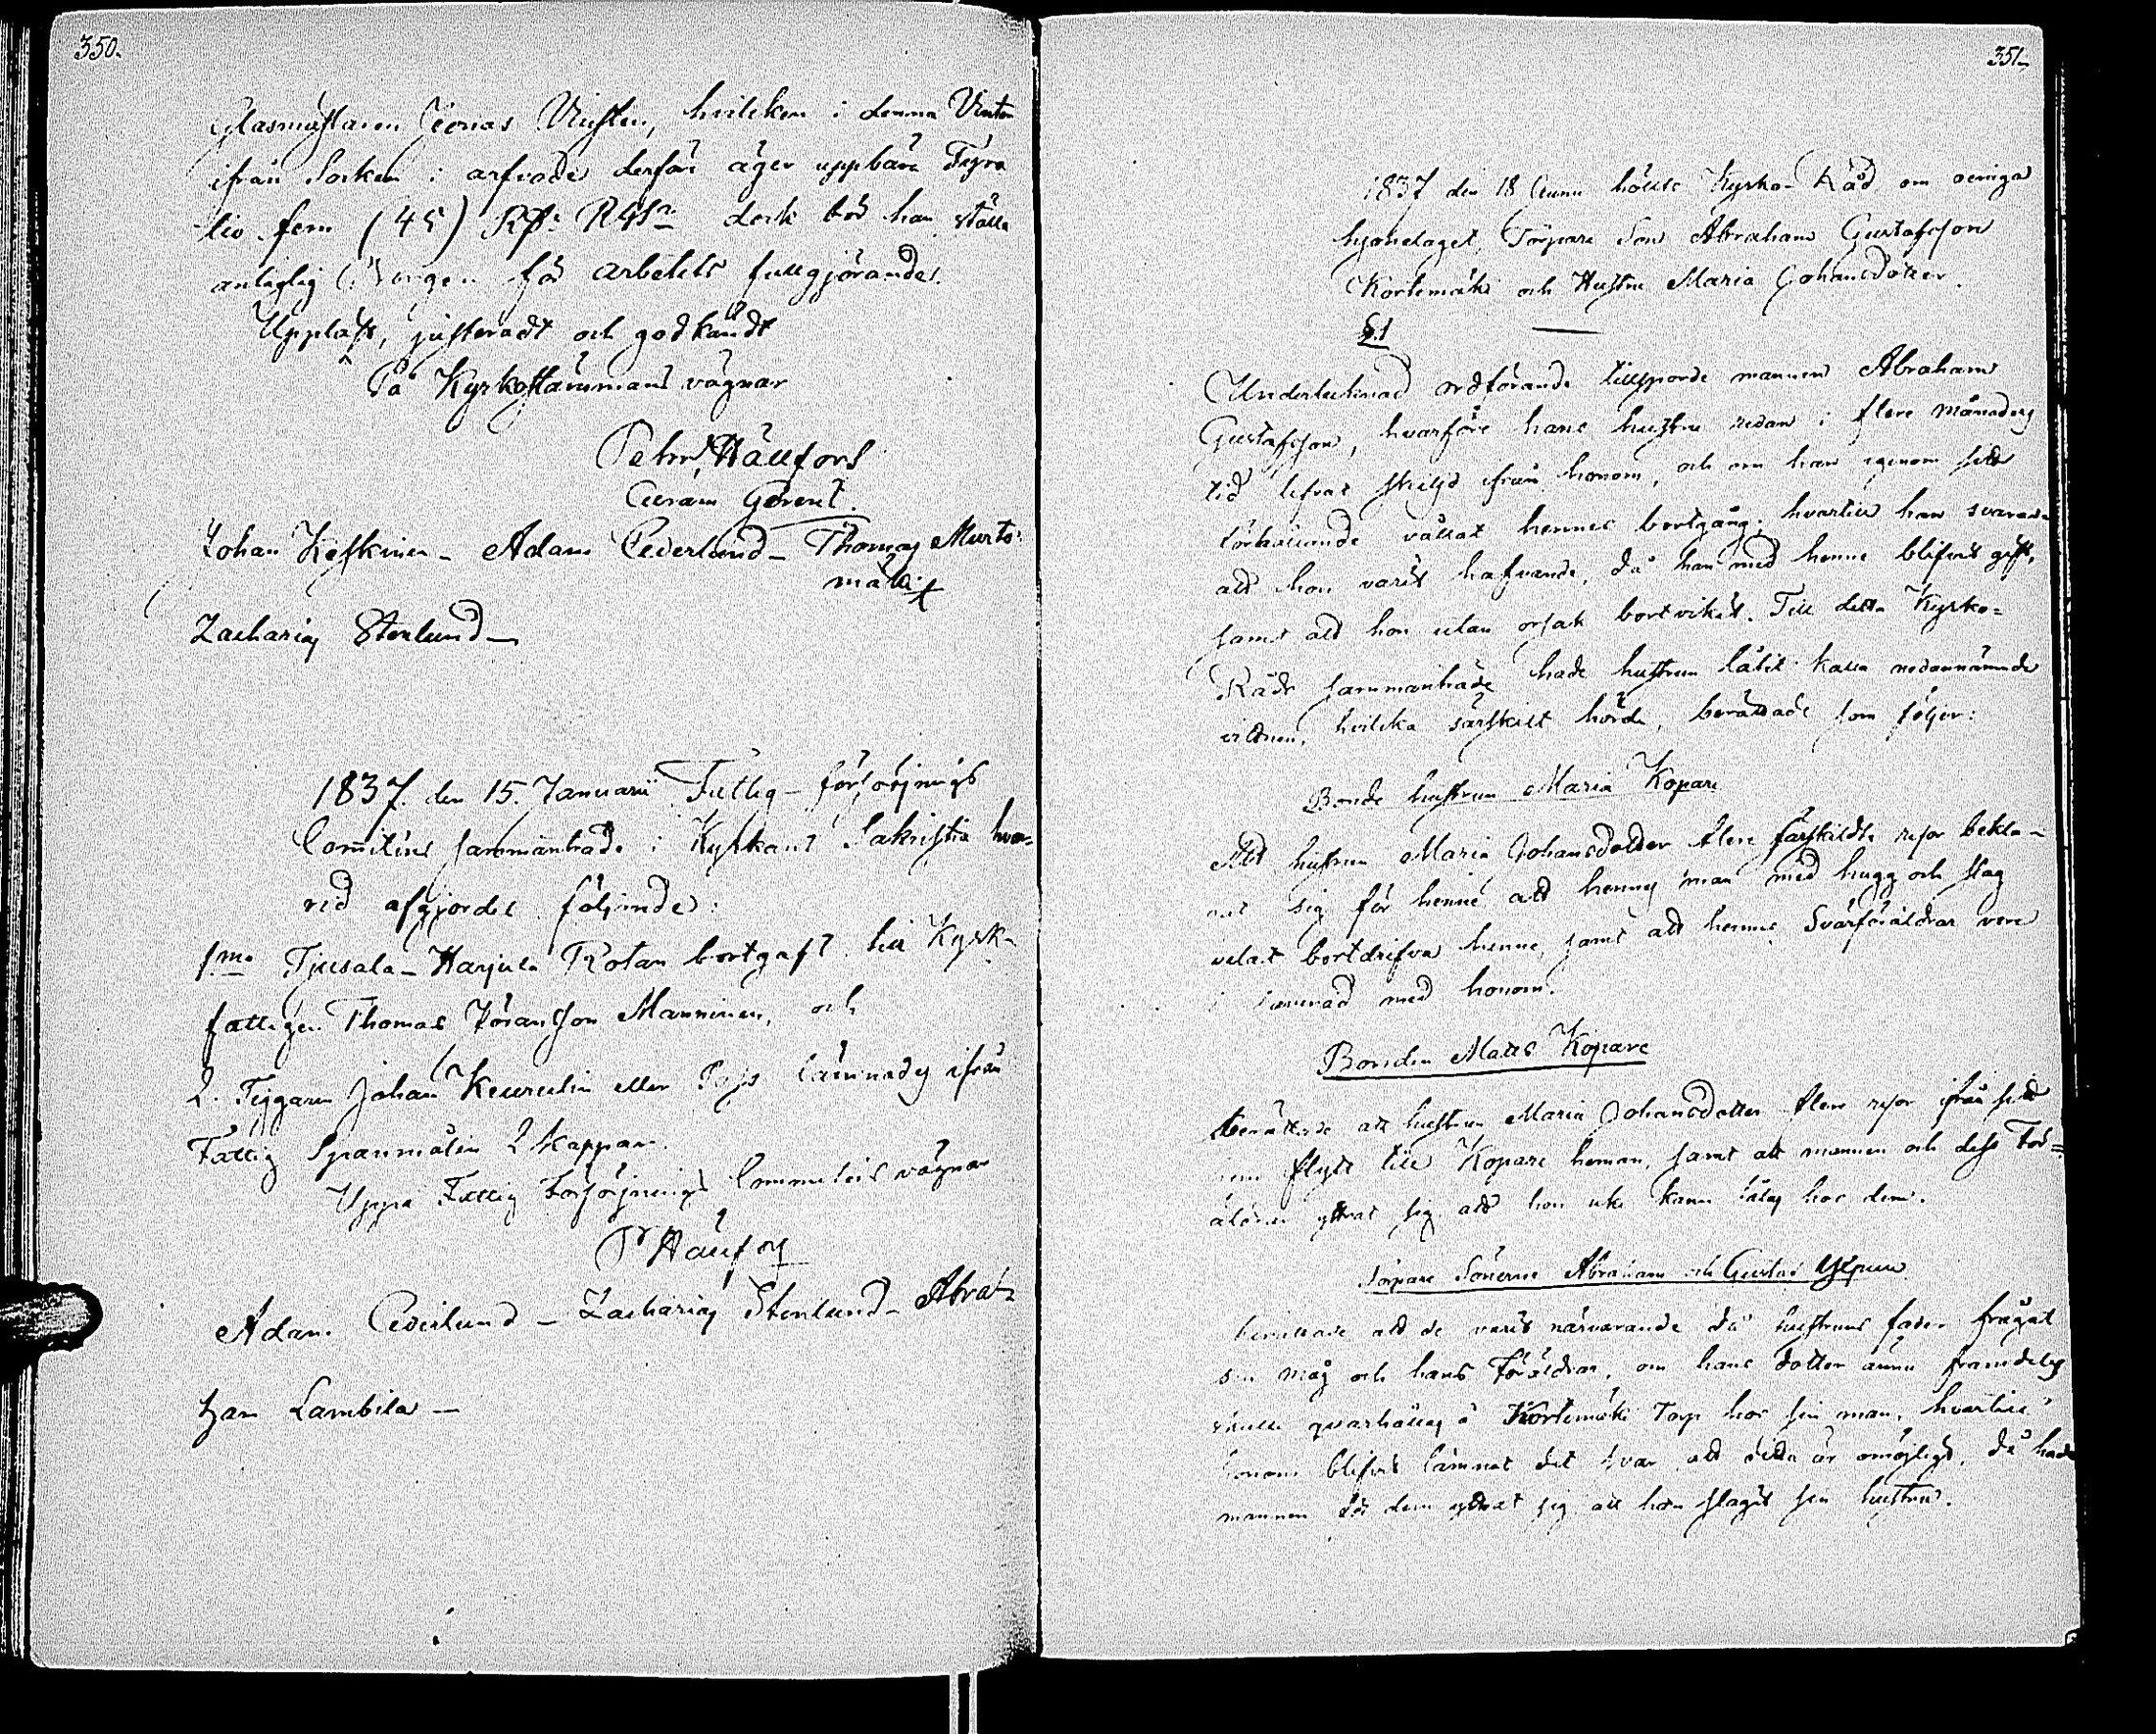 350.
Glasmästaren Jeonas Viksten, hvilcken i denna Vinter
ifrån Socken i arfvode derföre äger uppbära Fyra
tio fem (45) R. derk bör han ställa
anteglig Borgen för arbetets fullgjörande.
Uppläst, justeradt och godkändt
På Kyrkostämmans vägnar
Pehr Hällfors
Curam Gerent.
Johan Keskinen - Adam Cederlund - Thomas Murto-
mäki
Zacharias Stenlund -
1837. den 15. Januarii Fattig-försörjnings
Comitéens sammanträde i Kyrkans Sakristia hva-
vid afgjordes följande:
1mo Tjusala-Harjula Rotan bortgafs till Kyrk-
fattigen Thomas Jöransson Manninen, och
2. Tiggaren Johan Keurulin eller lämnades ifrån
Fattig Spanmålen 2 kappar.
Uppå Fattig Försörjnings Committéens vägnar
P Hällfors
Adam Cederlund - Zacharias Stenlund - Abra-
ham Lambila -
351.
1837 den 18 Junii hölls Kyrko-Råd om oeniga
hjonelaget, Torpare Son Abraham Gustafsson
Kortemäki och Hustru Maria Johansdotter.
§.1
Undertecknad ordförande tillsporde mannen Abraham
Gustafsson, hvarföre hans hustru redan i flere månaders
tid lefvat skiljd ifrån honom, och om han igenom sitt
förhållande vållat hennes bortgång; hvartill han svarade
att hon varit hafvande, då han med henne blifvit gift,
samt att hon utan orsak bortvikit. Till detta Kyrko-
Råds sammanträde hade hustrun låtit kalla nedannämnde
vittnen, hvilka särskilt hörde, berättade som följer:
Bonde hustrun Maria Kopare
Att hustrun Maria Johansdotter flere särskildte resor bekla-
gat sig för henne att hennes man med hugg och slag
velat bortdrifva henne, samt att hennes Svärföräldrar vore
i samråd med honom.
Bonden Matts Kopare
berättade att hustrun Maria Johansdotter flere resor ifrån sitt
hem flytt till Kopare heman, samt att mannen och dess För-
äldrar yttrat sig att hon icke kann tålas hos dem.
Torpare Sönerne Abraham och Gustav
berättade att de varit närvarande då hustruns fader frågat
sin måg och hans Föräldrar, om hans dotter ännu framdeles
skulle qvarhållas å Kortemäki Torp hos sin man, hvartill
honom blifvit lämnat det svar att detta är omöjligt. Då hade
mannen för dem yttrat sig att han slagit sin hustru.